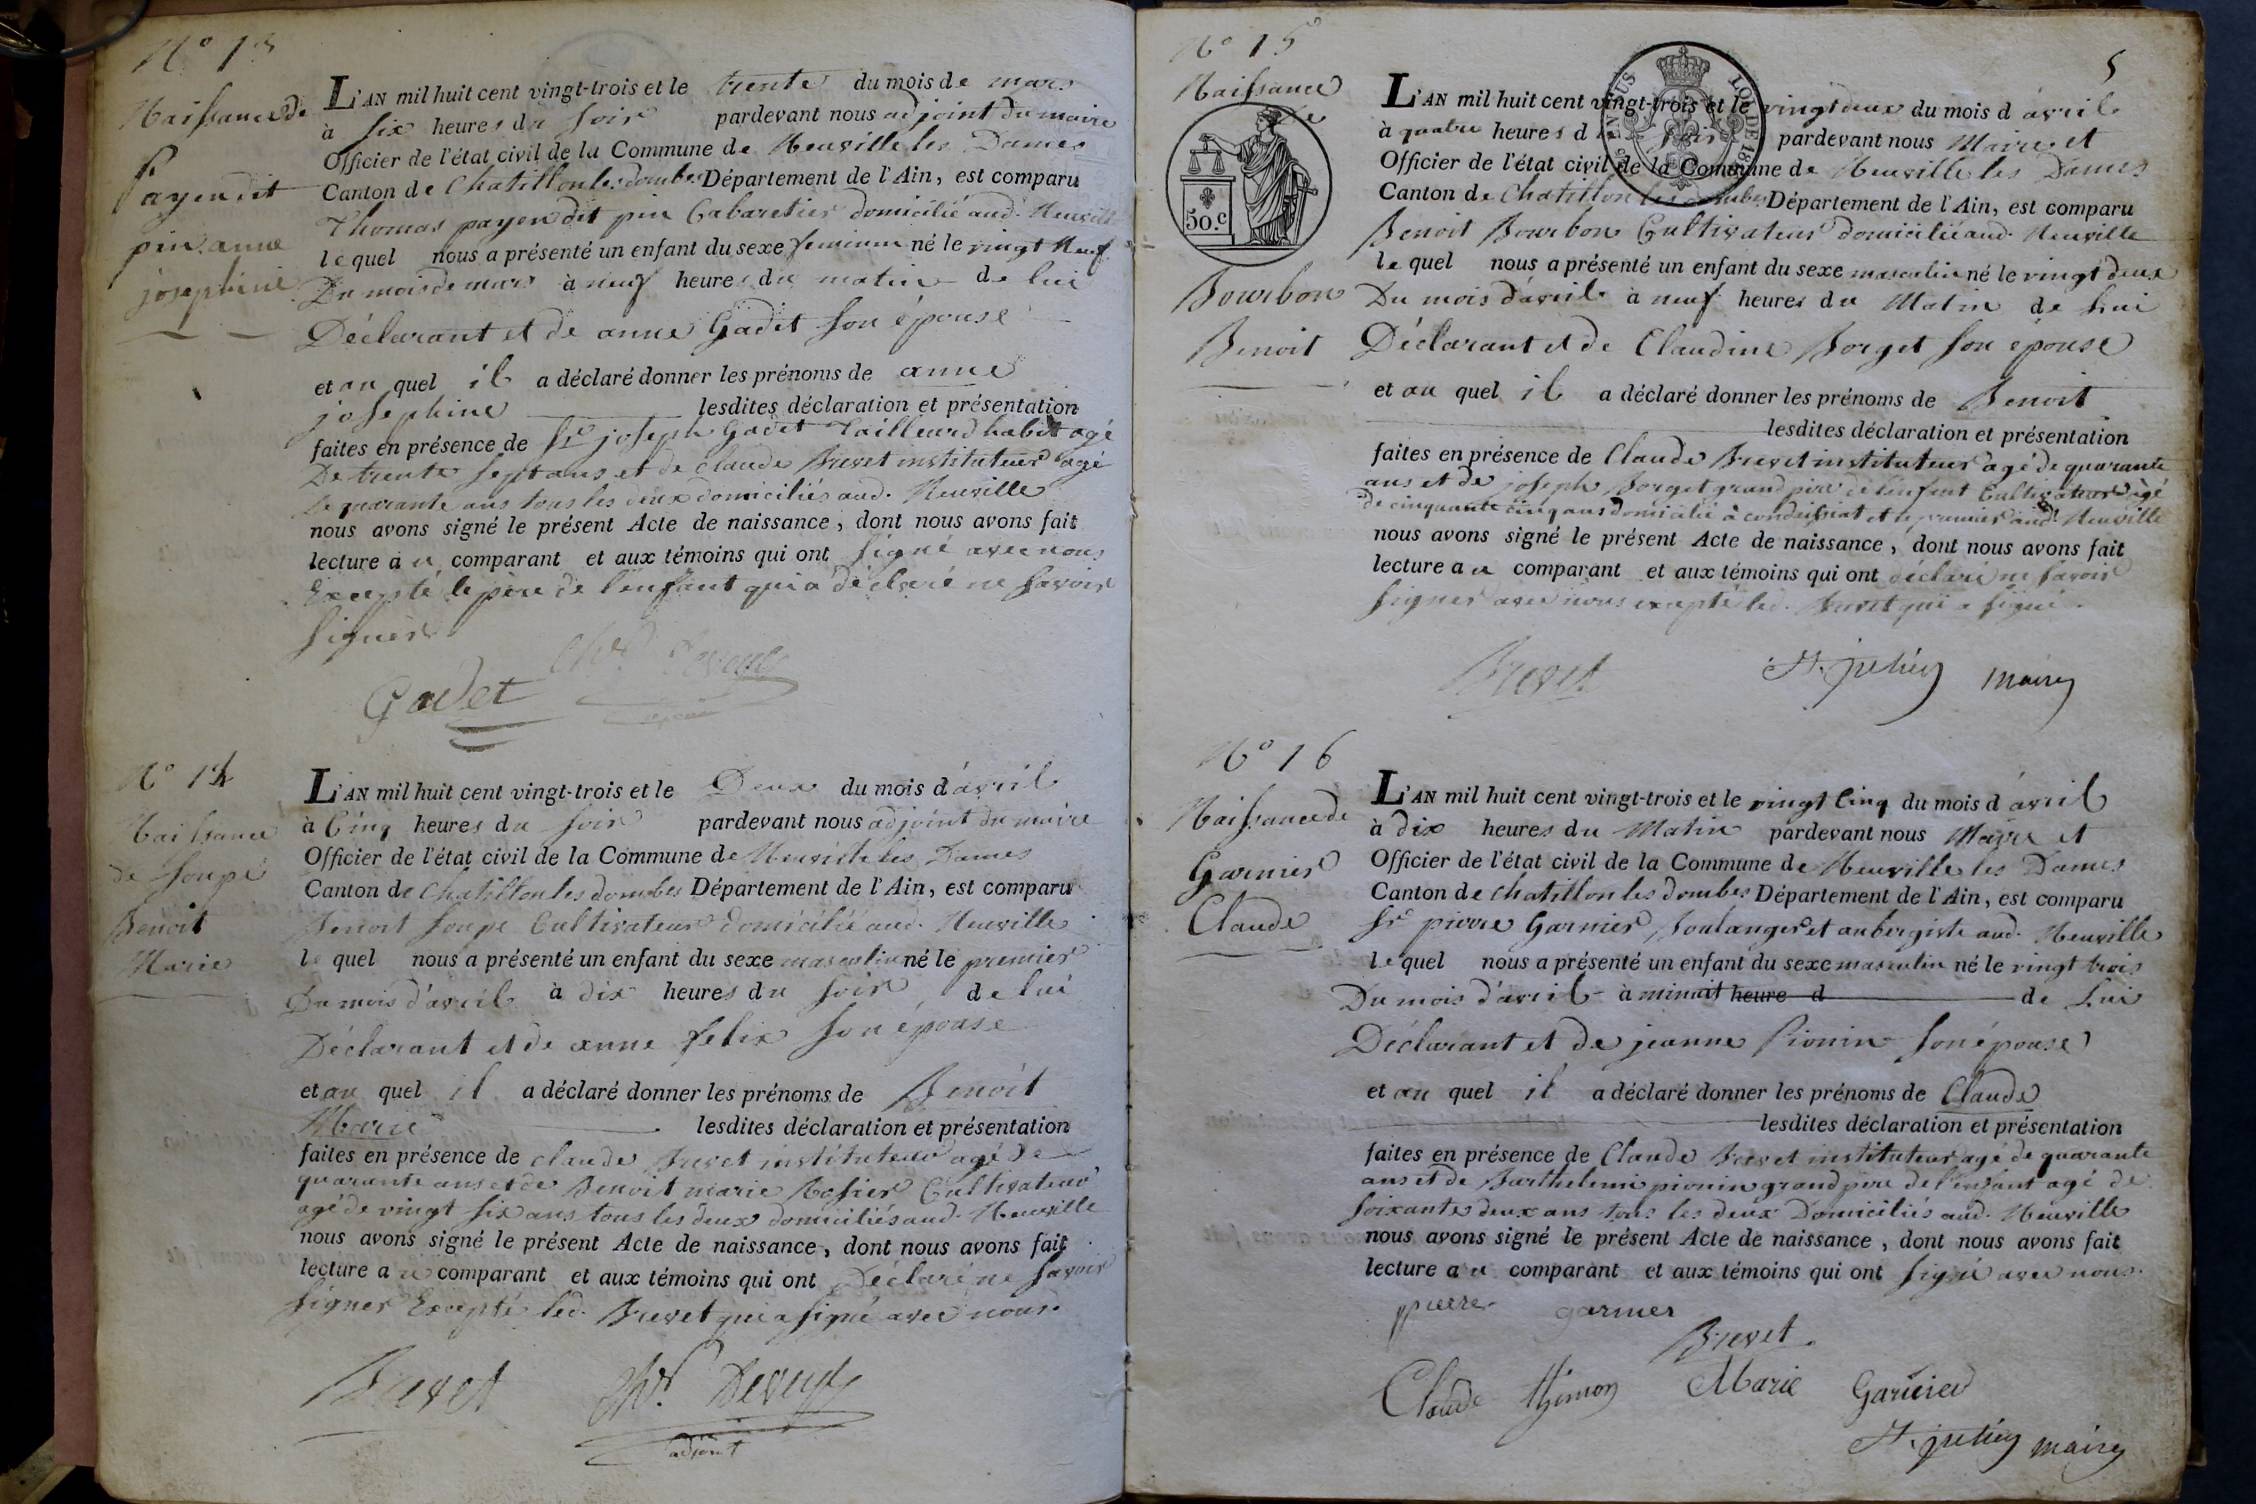 N° 13
Naissance de
Payen dit
pin anne
josephine
L'AN mil huit cent vingt-trois et le trente du mois de mars
à six heures du soir pardevant nous adjoint du maire
Officier de l'état civil de la Commune de Neuville les Dames
Canton de Chatillon les dombes Département de l'Ain, est comparu
Thomas payen dit pin Cabaretier domicilié aud. Neuville
le quel nous a présenté un enfant du sexe feminin né le vingt Neuf
Du mois de mars à neuf heures du matin de lui
Déclarant et de anne Gadet son épouse
et au quel il a déclaré donner les prénoms de anne
josephine lesdites déclaration et présentation
faites en présence de Sr. joseph Gadet Tailleur d'habit agé
De trente sept ans et de claude Brevet instituteur agé
de quarante ans tous les deux domiciliés aud. Neuville
nous avons signé le présent Acte de naissance, dont nous avons fait
lecture au comparant et aux témoins qui ont signé avec nous
Excepté le père de l'enfant qui a déclaré ne savoir
signer
Gadet
N° 14
Naissance
de Soupe
Benoit
Marie
L'AN mil huit cent vingt-trois et le Deux du mois d'avril
à Cinq heures du soir pardevant nous adjoint du maire
Officier de l'état civil de la Commune de Neuville les Dames
Canton de Chatillon les dombes Département de l'Ain, est comparu
Benoit Soupe Cultivateur domicilié aud. Neuville
le quel nous a présenté un enfant du sexe masculin né le premier
Du mois d'avril à dix heures du soir, de lui
Déclarant et de anne felix son épouse
et au quel il a déclaré donner les prénoms de Benoit
Marie lesdites déclaration et présentation
faites en présence de claude Brevet instituteur agé de
quarante ans et de Benoit marie Rosier Cultivateur
agé de vingt six ans tous les deux domiciliés aud. Neuville
nous avons signé le présent Acte de naissance, dont nous avons fait
lecture au comparant et aux témoins qui ont Déclaré ne savoir
signer Excepté led. Brevet qui a signé avec nous.
Brevet
adjoint
5
N° 15
Naissance
de
50.c
Bourbon
Benoit
L'AN mil huit cent vingt-trois et le vingt deux du mois d'avril
à quatre heures d soir pardevant nous Maire et
Officier de l'état civil de la Commune de Neuville les Dames
Canton de Chatillon les dombes Département de l'Ain, est comparu
Benoit Bourbon Cultivateur domicilié aud. Neuville
le quel nous a présenté un enfant du sexe masculin né le vingt deux
Du mois d'avril à neuf heures du Matin de Lui
Déclarant et de Claudine Borget son épouse
et au quel il a déclaré donner les prénoms de Benoit
lesdites déclaration et présentation
faites en présence de Claude Brevet instituteur agé de quarante
ans et de joseph Borget grand père de l'enfant Cultivateur agé
de cinquante cinq ans domicilié à condeissiat et le premier aud. Neuville
nous avons signé le présent Acte de naissance, dont nous avons fait
lecture au comparant et aux témoins qui ont déclaré ne savoir
signer avec nous excepté led. Brevet qui a signé.
Brevet maire
N° 16
Naissance de
Garnier
Claude
L'AN mil huit cent vingt-trois et le vingt Cinq du mois d'avril
à dix heures du Matin pardevant nous Maire et
Officier de l'état civil de la Commune de Neuville les Dames
Canton de Chatillon les dombes Département de l'Ain, est comparu
Sr. pierre Garnier, Boulanger et aubergiste aud. Neuville
le quel nous a présenté un enfant du sexe masculin né le vingt trois
Du mois d'avril à minuit heure d de Lui
Déclarant et de jeanne Pionin son épouse
et au quel il a déclaré donner les prénoms de Claude
lesdites déclaration et présentation
faites en présence de Claude Brevet instituteur agé de quarante
ans et de Barthelemi pionin grand père de l'enfant agé de
soixante deux ans tous les deux Domiciliés aud. Neuville
nous avons signé le présent Acte de naissance, dont nous avons fait
lecture au comparant et aux témoins qui ont signé avec nous.
pierre garnier
Brevet
Claude Marie Garnier
maire